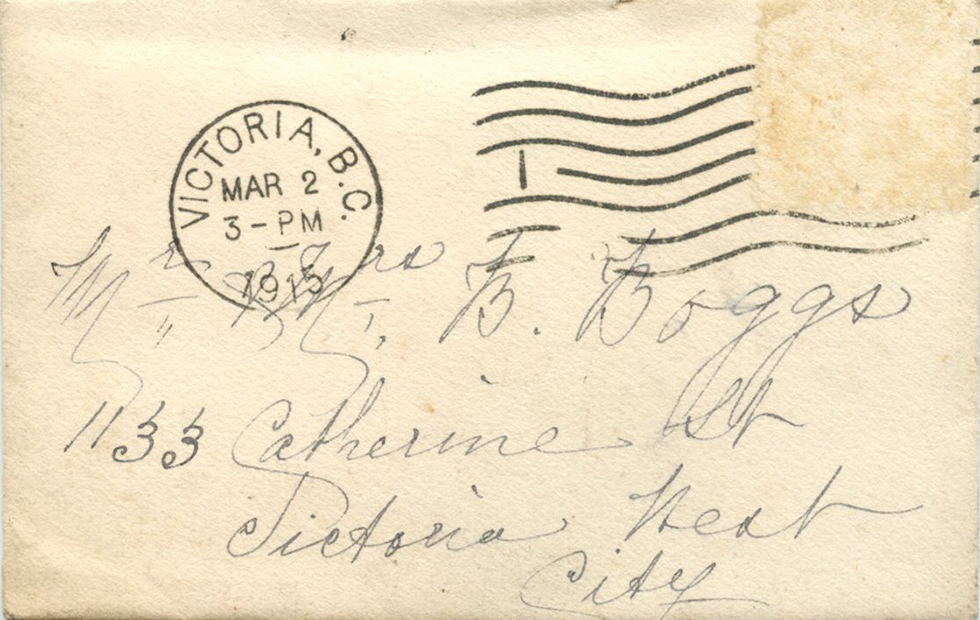 VICTORIA, B.C.
MAR 2
3-PM
1915
1
Mr & Mrs B. Boggs
1133 Catherine St
Victoria West
City